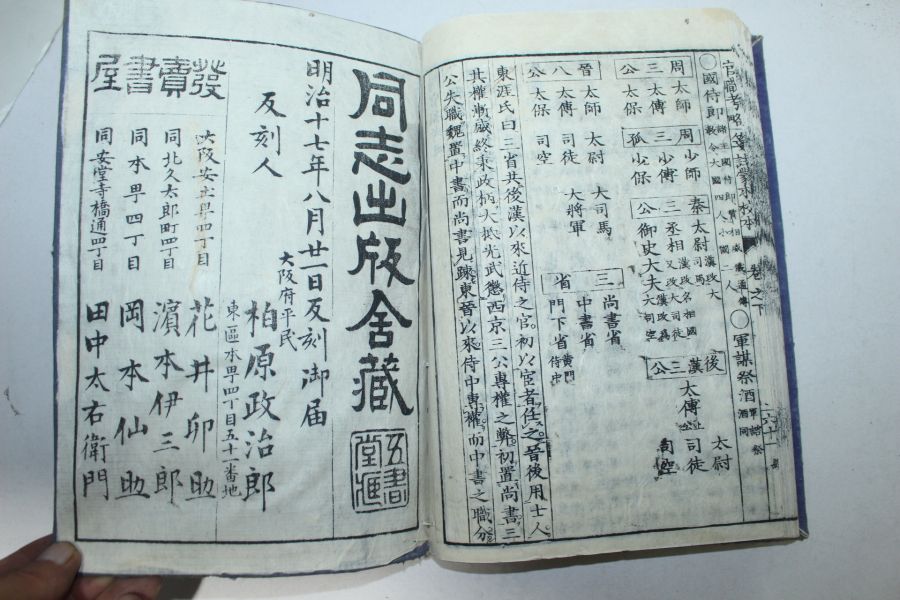 官職考略
○國侍郎
○軍謀祭酒
周三公
太師
太傅
太保
周三孤
少師
少傅
少保
秦三公
太尉
丞相
御史大夫
後漢三公
太傅
太尉
司徒
司空
晉八公
太師
太傅
太保
太尉
司徒
司空
大司馬
大將軍
三省
尚書省
中書省
門下省
東涯氏曰三省共後漢以來近侍之官初以宦者任之晉後用士人
其權漸盛終秉政柄大抵光武懲西京三公專權之弊初置尚書三
公失職魏置中書而尚書見疎東晉以來侍中專權而中書之職分
同志出版舍藏
明治十七年八月廿一日反刻御届
反刻人
大阪府平民
柏原政治郎
東區本町四丁目五十一番地
發賣書屋
大阪安土町四丁目
花井卯助
同北久太郎町四丁目
濱本伊三郎
同本町四丁目
岡本仙助
同安堂寺橋通四丁目
田中太右衛門